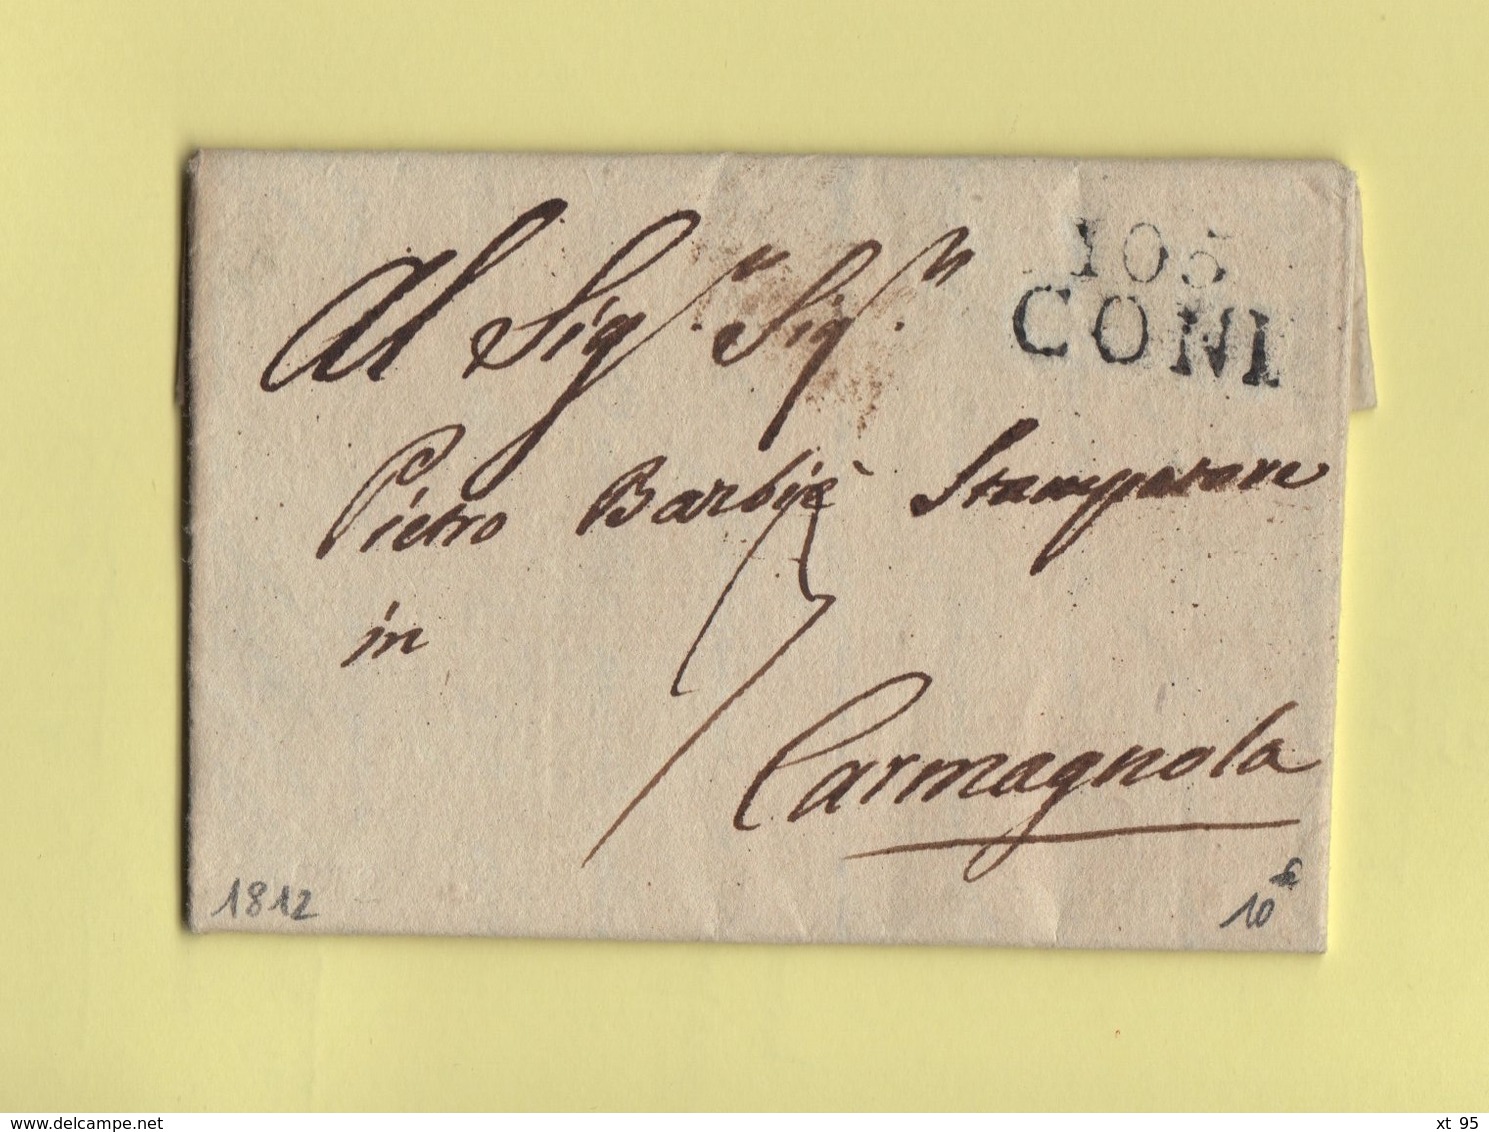 105
CONI
Al Sig.r Sig.r
Pietro Barbiè Stampatore
in
Carmagnola
1812
10
delcampe.net
xt 95